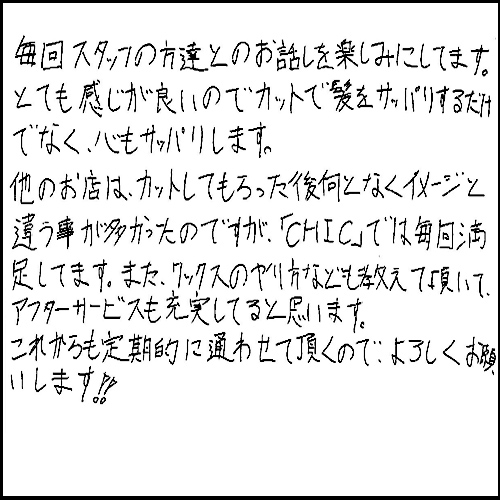 毎回スタッフの方達とのお話しを楽しみにしてます。
とても感じが良いのでカットで髪をサッパリするだけ
でなく、心もサッパリします。
他のお店は、カットしてもらった後何となくイメージと
違う事が多かったのですが、「CHIC」では毎回満
足してます。また、ワックスのやり方なども教えて頂いて、
アフターサービスも充実してると思います。
これからも定期的に通わせて頂くので、よろしくお願
いします!!